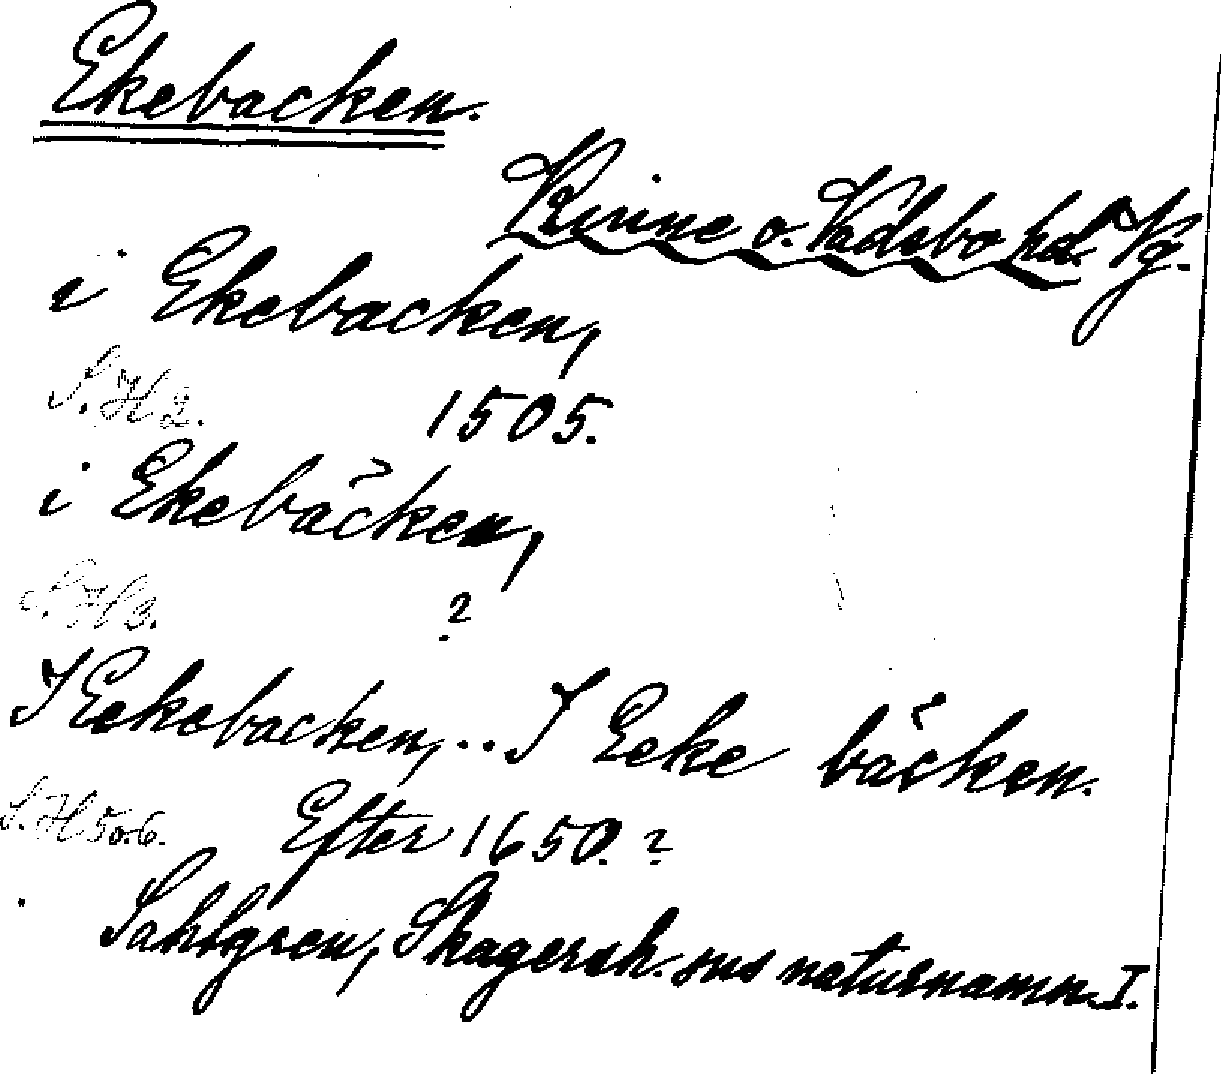 Ekebacken.
Kinne o. Vadsbo hd. Vg.
i Ekebacken,
S. H 2. 1505.
i Ekebäcken,
S. H 3. ?
I Eekebacken, .. I Eeke bäcken.
S. H 5 o. 6. Efter 1650. ?
Sahlgren, Skagersh. sns naturnamn I.